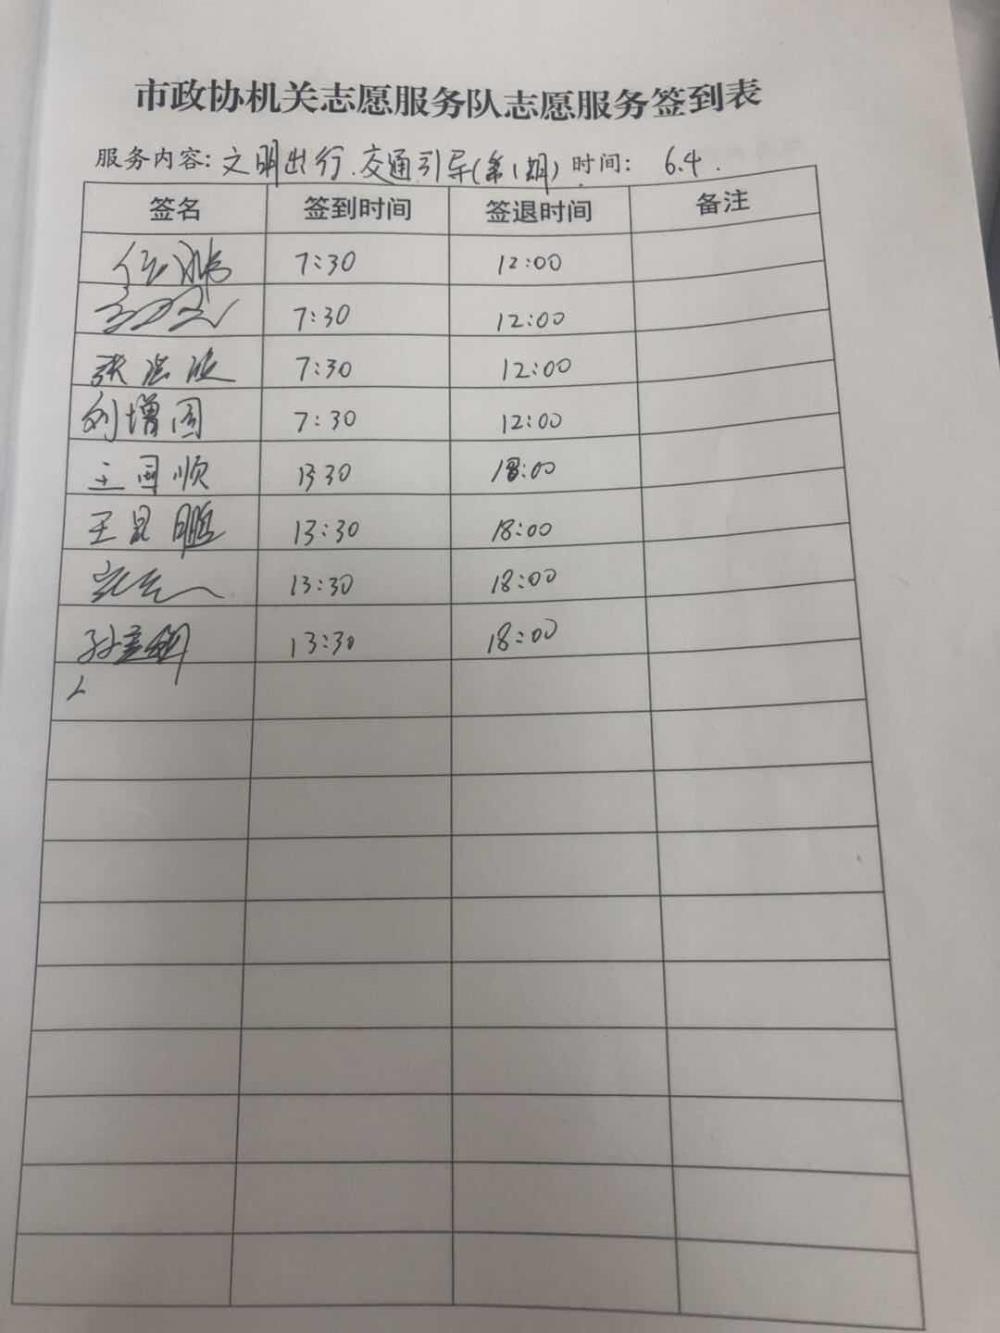 市政协机关志愿服务队志愿服务签到表
服务内容: 文明出行、交通引导(第1期) 时间: 6.4.
签名 签到时间 签退时间 备注
7:30 12:00
7:30 12:00
张 7:30 12:00
刘增国 7:30 12:00
王国顺 13 30 18:00
王昆鹏 13:30 18:00
13:30 18:00
孙 13:30 18:00